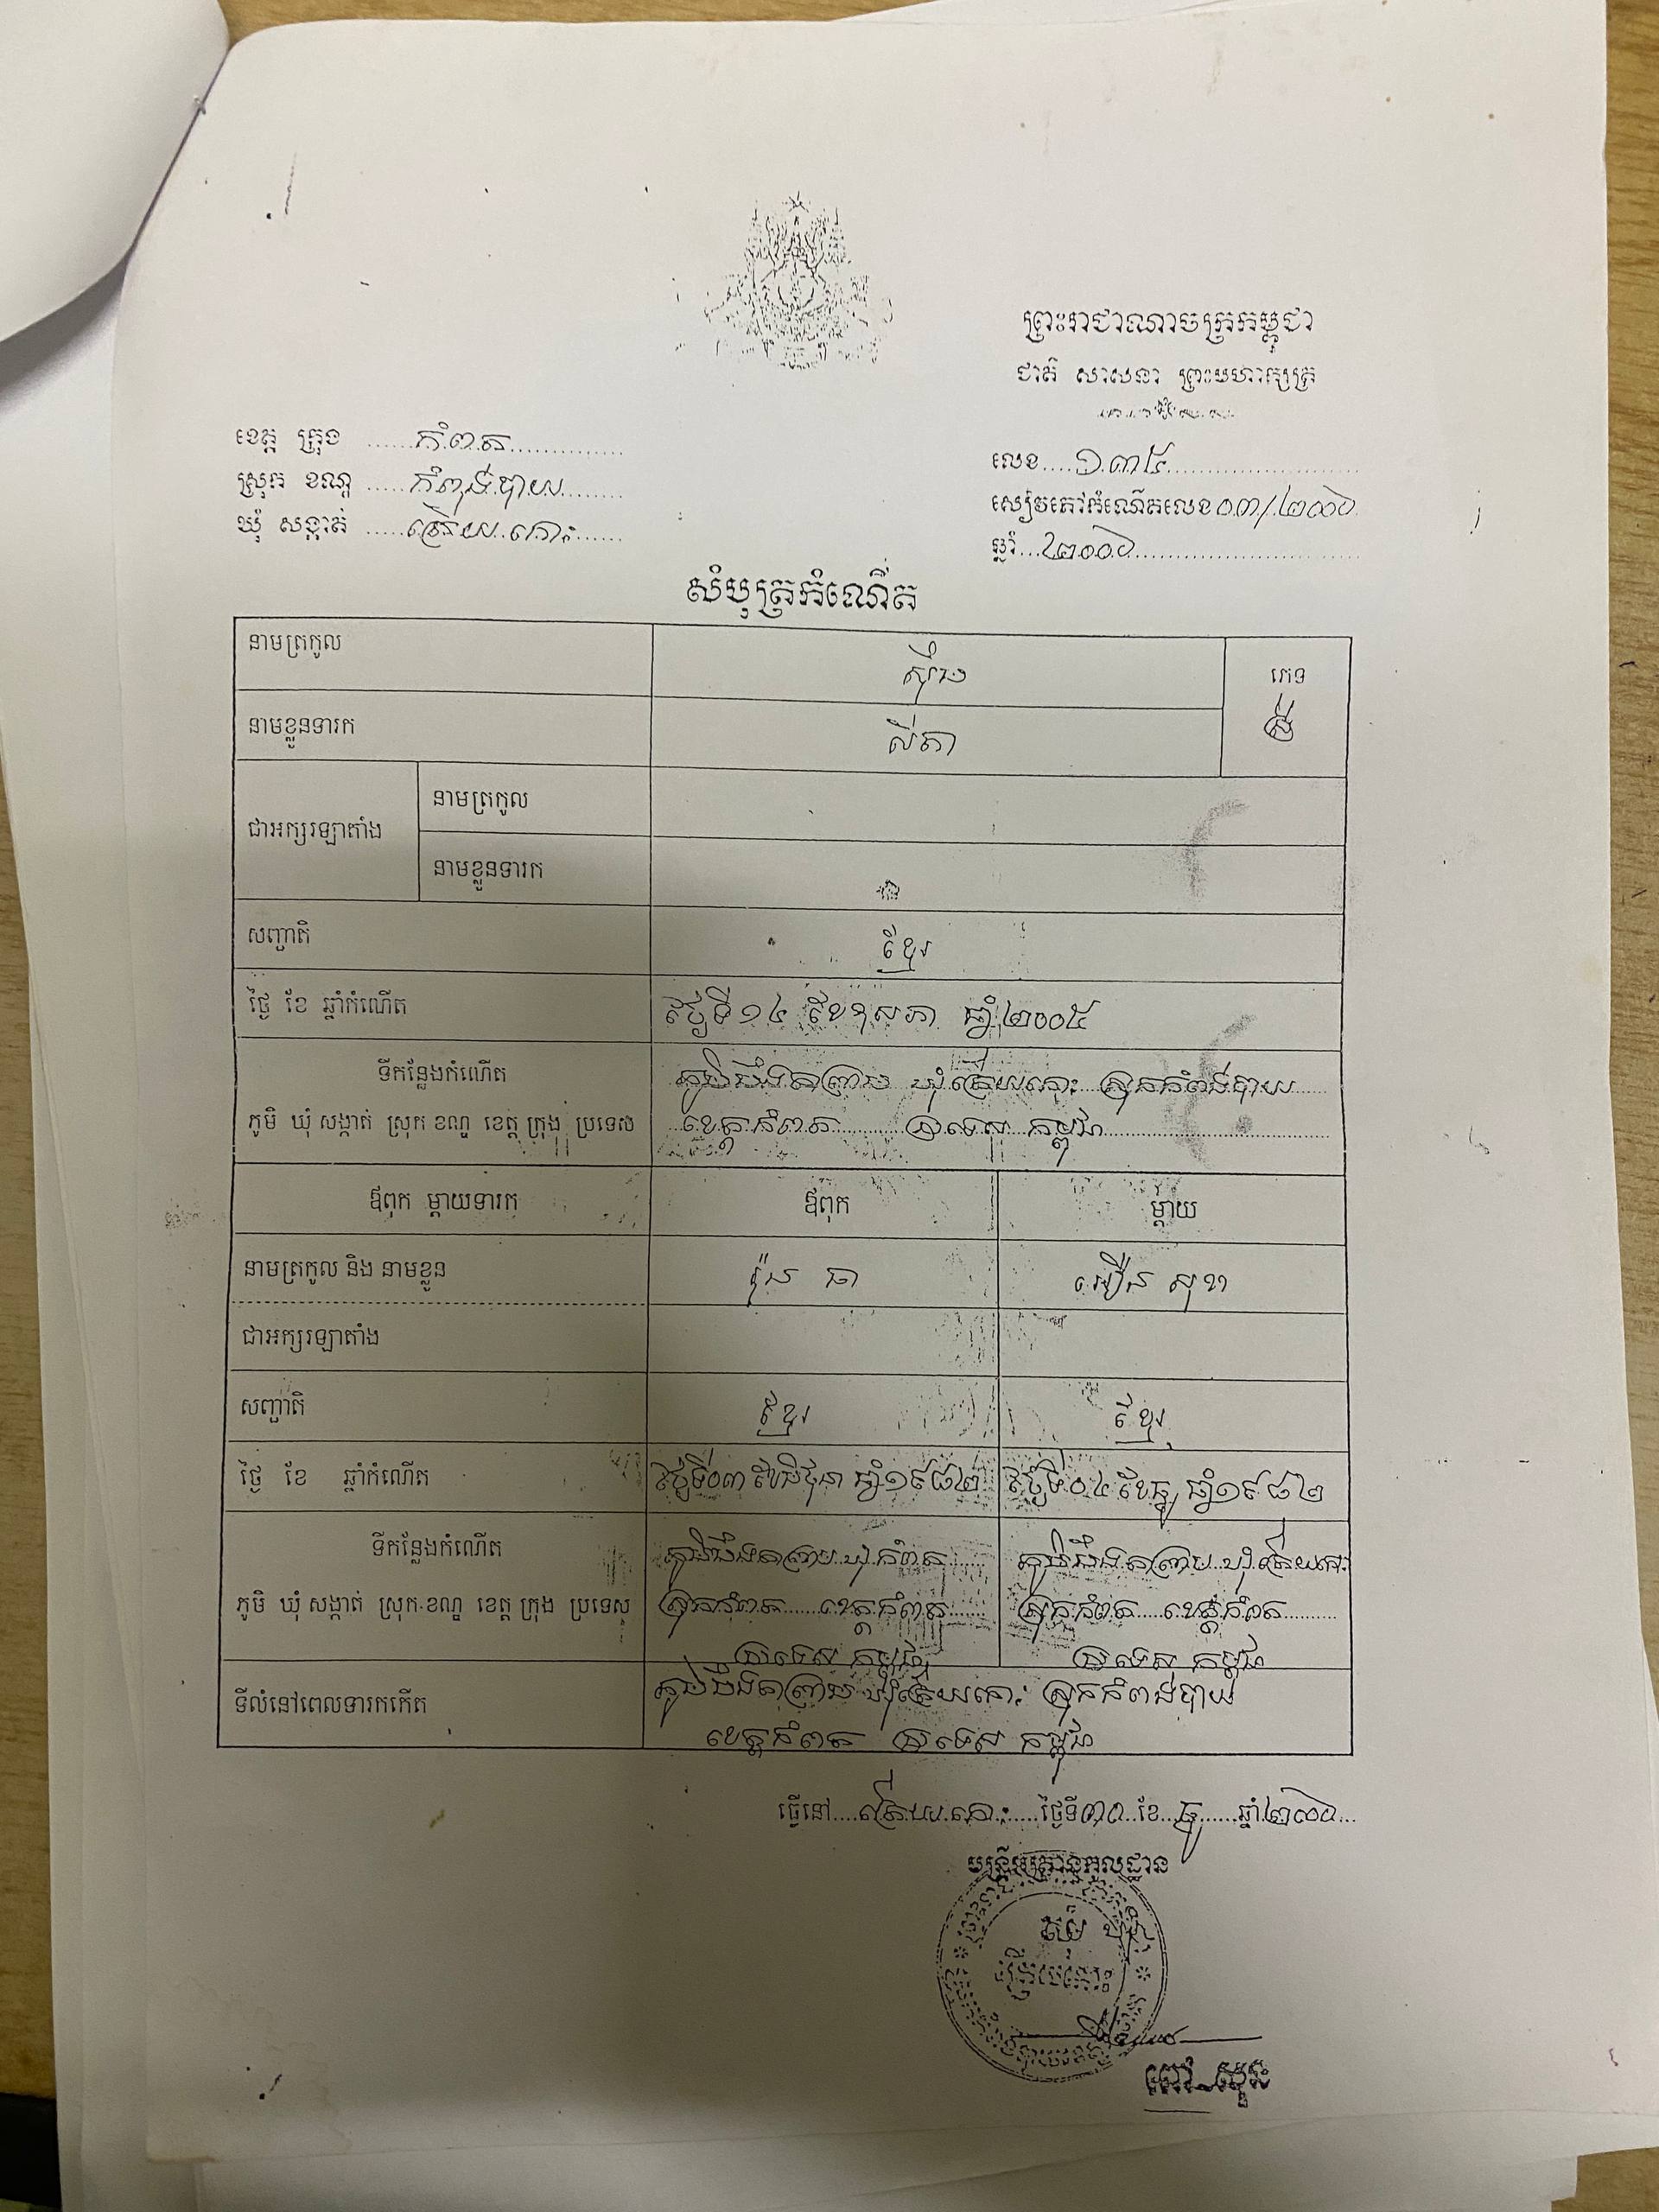 ព្រះរាជាណាចក្រកម្ពុជា
ជាតិ សាសនា ព្រះមហាក្សត្រ
ខេត្ត ក្រុង ......កំពត
ស្រុក ខណ្ឌ .....កំពង់បាយ
ឃុំ សង្កាត់ .....ត្រើយកោះ
លេខ....១៣៥
សៀវភៅកំណើតលេខ០៣/២០០៦
ឆ្នាំ...២០០៦
សំបុត្រកំណើត
នាមត្រកូល ស៊ីម
ភេទ
នាមខ្លួនទារក សីតា ស
ជាអក្សរឡាតាំង នាមត្រកូល
នាមខ្លួនទារក
សញ្ជាតិ ខ្មែរ
ថ្ងៃ ខែ ឆ្នាំកំណើត ថ្ងៃទី១៤ ខែឧសភា ឆ្នាំ២០០៥
ទីកន្លែងកំណើត ឃុំត្រើយកោះ ស្រុកកំពង់បាយ
ភូមិ ឃុំ សង្កាត់ ស្រុក ខណ្ឌ ខេត្ត ក្រុង ប្រទេស ខេត្តកំពត ប្រទេស កម្ពុជា
ឪពុក ម្ដាយទារក ឪពុក ម្ដាយ
នាមត្រកូល និង នាមខ្លួន ប៉ុន ធា អឿន សុខា
ជាអក្សរឡាតាំង
សញ្ជាតិ ខ្មែរ ខ្មែរ
ថ្ងៃ ខែ ឆ្នាំកំណើត ថ្ងៃទី០៣ ខែមិថុនា ឆ្នាំ១៩៨២ ថ្ងៃទី០៤ ខែធ្នូ ឆ្នាំ១៩៨២
ទីកន្លែងកំណើត ឃុំកំពត ឃុំត្រើយកោះ
ភូមិ ឃុំ សង្កាត់ ស្រុក ខណ្ឌ ខេត្ត ក្រុង ប្រទេស ស្រុកកំពត ខេត្តកំពត ស្រុកកំពត ខេត្តកំពត
ប្រទេស កម្ពុជា ប្រទេស កម្ពុជា
ទីលំនៅពេលទារកកើត ឃុំត្រើយកោះ ស្រុកកំពង់បាយ
ខេត្តកំពត ប្រទេស កម្ពុជា
ធ្វើនៅ....ត្រើយកោះ.....ថ្ងៃទី៣០..ខែ..ធ្នូ.....ឆ្នាំ២០០៦...
មន្ត្រីអត្រានុកូលដ្ឋាន
ត្រើយកោះ
ពៅ សួន